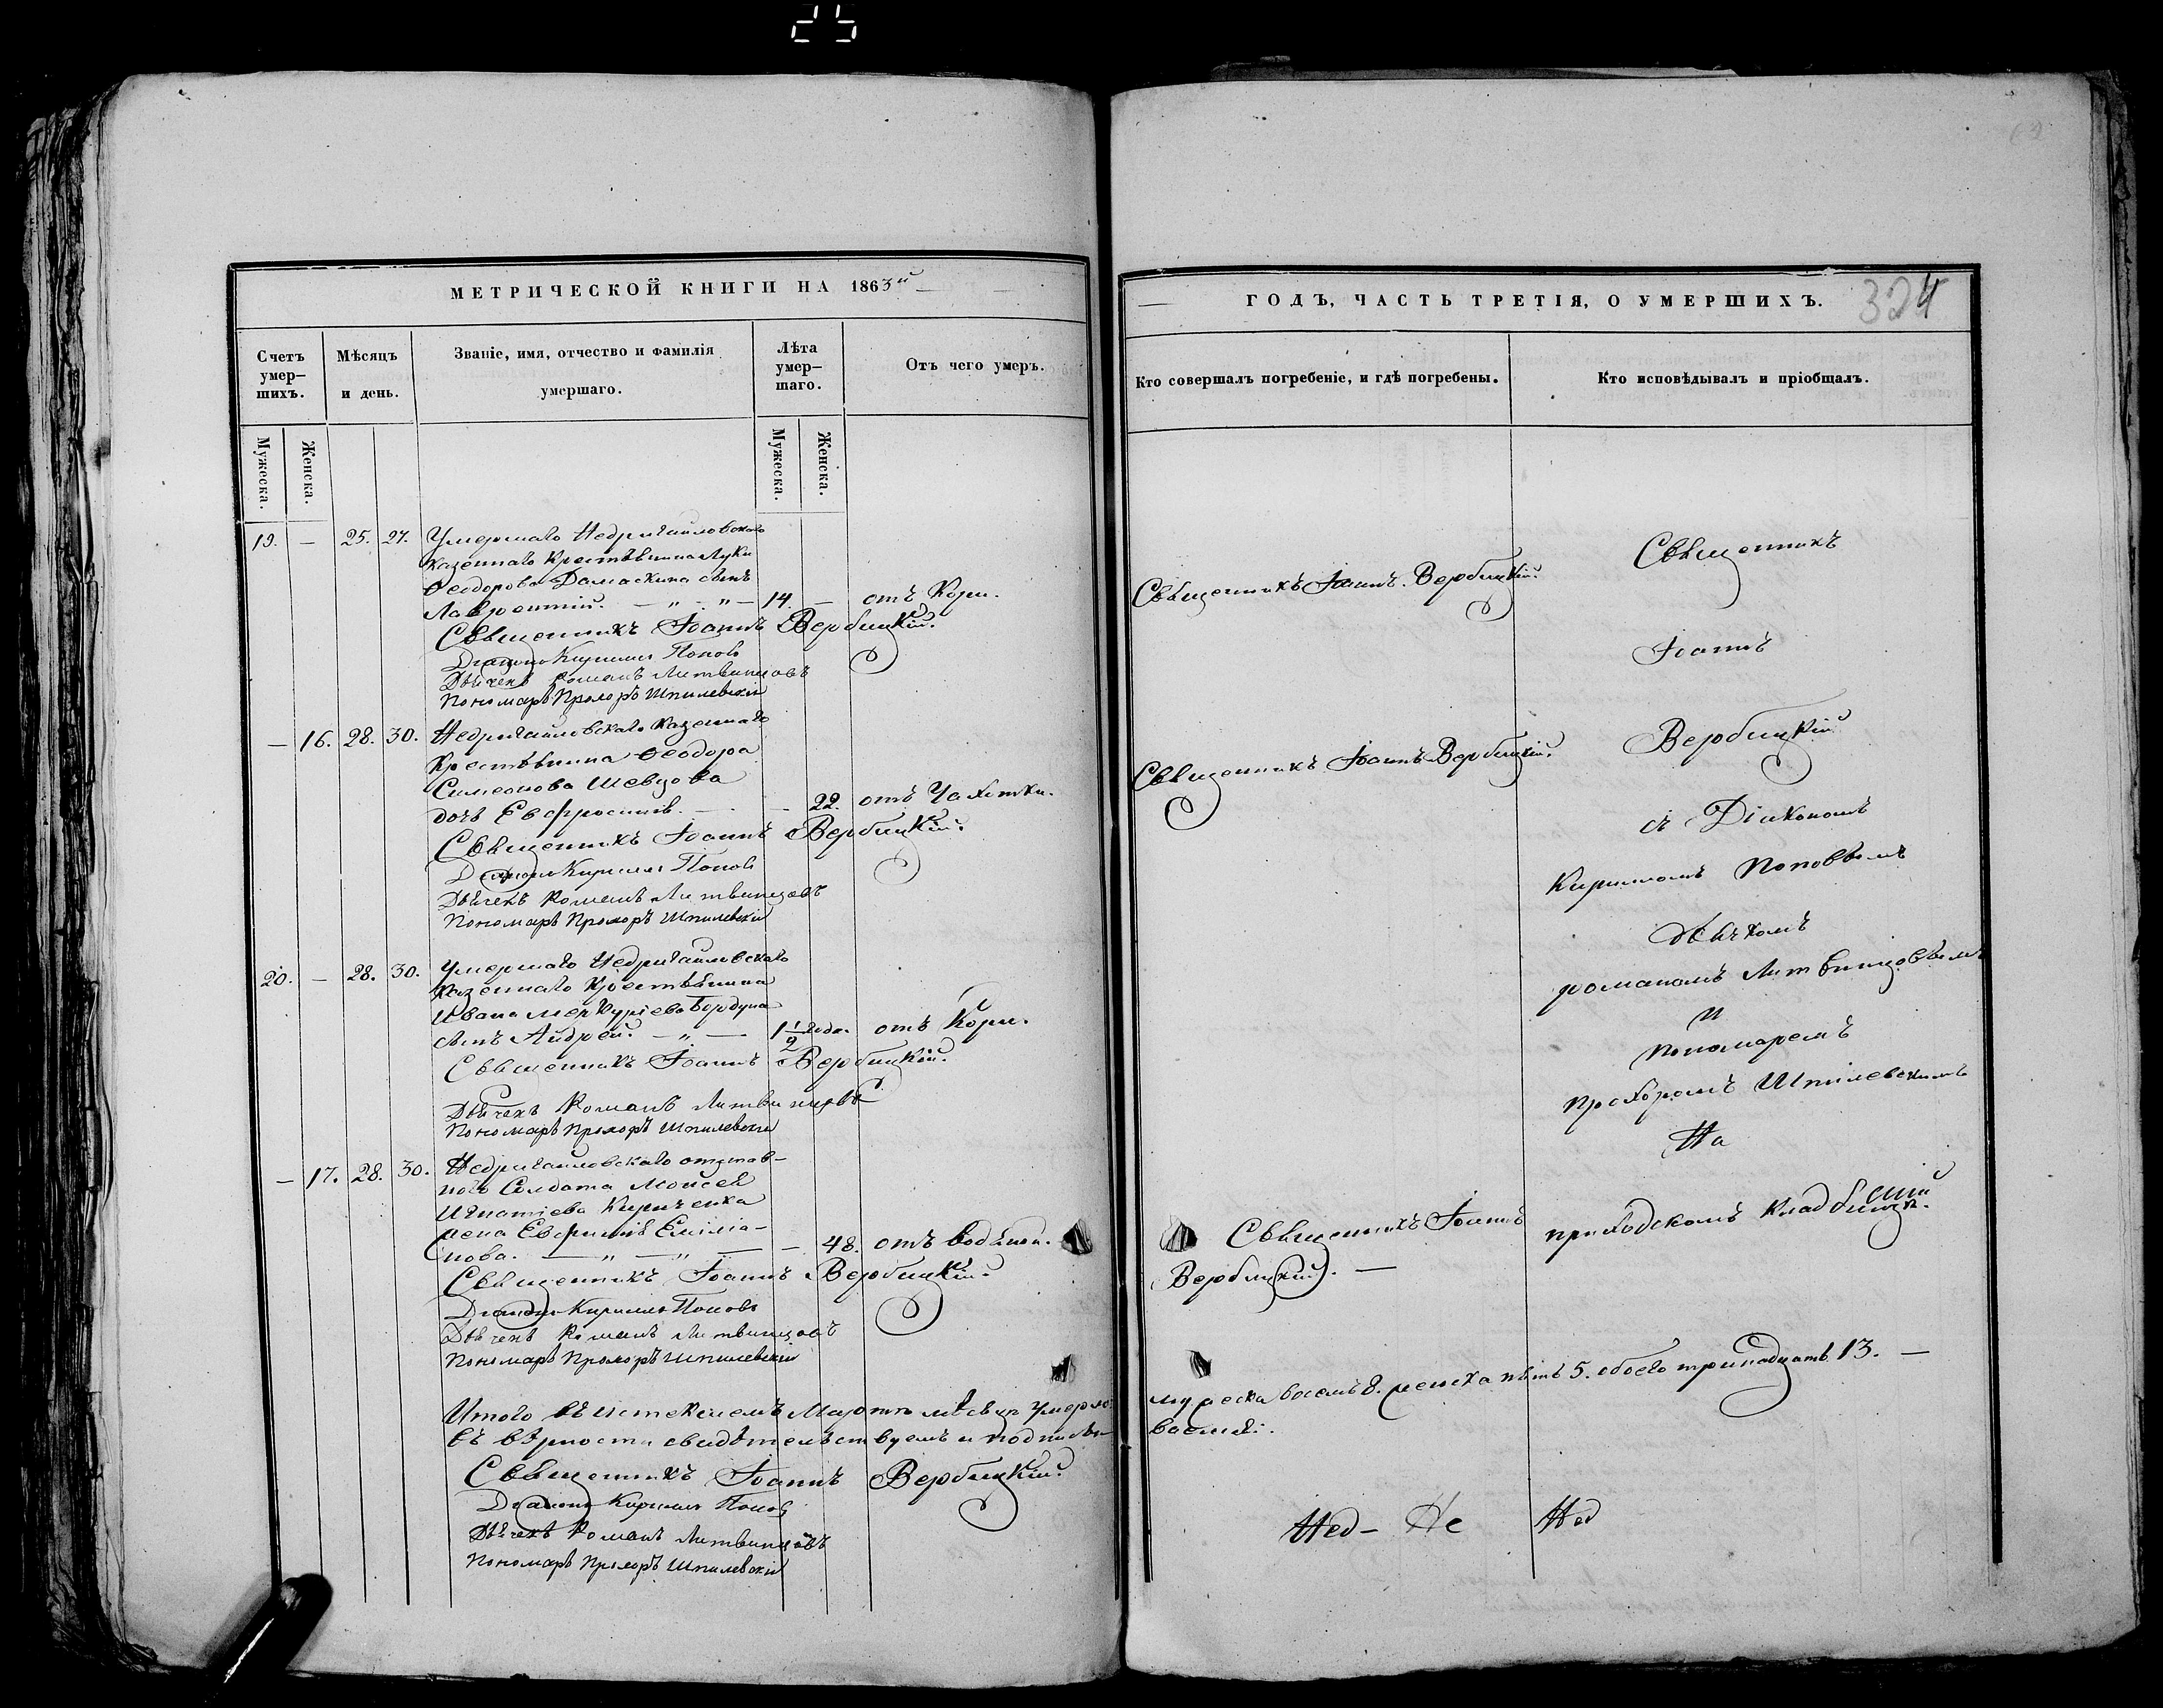 25
МЕТРИЧЕСКОЙ КНИГИ НА 1863й
Счетъ умер-
шихъ.
Мѣсяцъ
и день.
Званіе, имя, отчество и фамилія
умершаго.
Лѣта
умер-
шаго.
Отъ чего умеръ.
Мужеска.
Женска.
Мужеска.
Женска.
19. — 25. 27. Умершаго Недригайловскаго
казеннаго Крестьянина Луки
Ѳеодорова Дамаскина сынъ
Лаврентій. — „ — „ — 14. — отъ Кори.
Священникъ Іоаннъ Вербицкій.
Діаконъ Кириллъ Поповъ
Дьячекъ Романъ Литвинцовъ
Пономарь Прохоръ Шпилевскій
— 16. 28. 30. Недригайловскаго Казеннаго
Крестьянина Ѳеодора
Симеонова Шевцова
дочь Евфросинія. — — 22. отъ Чахотки.
Священникъ Іоаннъ Вербицкій.
Діаконъ Кириллъ Поповъ
Дьячекъ Романъ Литвинцовъ
Пономарь Прохоръ Шпилевскій
20. — 28. 30. Умершаго Недригайловскаго
Казеннаго Крестьянина
Ивана Меркуріева Бордуна
сынъ Андрей. — „ — 1 1/2 года. отъ Кори.
Священникъ Іоаннъ Вербицкій.
Дьячекъ Романъ Литвинцовъ
Пономарь Прохоръ Шпилевскій
— 17. 28. 30. Недригайловскаго отстав-
ного Солдата Моисея
Игнатіева Кириченка
жена Евфимія Емиліа-
нова. — „ — „ — — 48. отъ водяной.
Священникъ Іоаннъ Вербицкій.
Діаконъ Кириллъ Поповъ
Дьячекъ Романъ Литвинцовъ
Пономарь Прохоръ Шпилевскій
Итого въ истекшемъ Мартѣ мѣсяцѣ умерло
въ вѣрности свидѣтельствуемъ и подписы-
Священникъ Іоаннъ Вербицкій.
Діаконъ Кириллъ Поповъ
Дьячекъ Романъ Литвинцовъ
Пономарь Прохоръ Шпилевскій
ГОДЪ, ЧАСТЬ ТРЕТІЯ, О УМЕРШИХЪ.
324
Кто совершалъ погребеніе, и гдѣ погребены.
Кто исповѣдывалъ и пріобщалъ.
Священникъ Іоаннъ Вербицкій.
Священникъ Іоаннъ Вербицкій.
Священникъ Іоаннъ
Вербицкій. —
Священникъ
Іоаннъ
Вербицкій
съ Діакономъ
Кирилломъ Поповымъ
дьячкомъ
романомъ Литвинцовымъ
и
пономаремъ
прохоромъ Шпилевскимъ
На
приходскомъ Кладбищѣ.
мужеска восемь 8. женска пять 5. обоего тринадцать 13. —
ваемся.
Нед- Не Нед